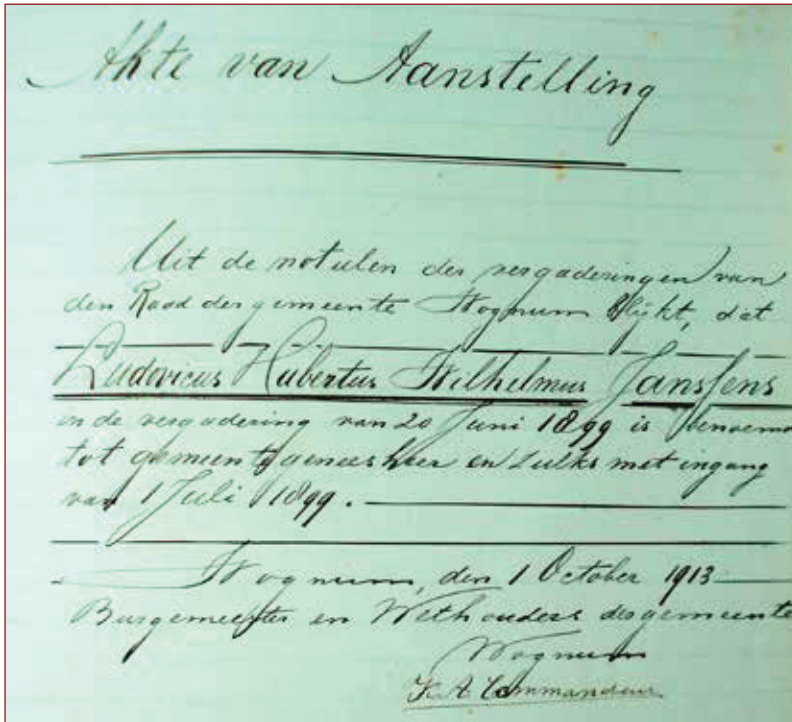 Akte van Aanstelling
Uit de notulen der vergaderingen van
den Raad der gemeente Wognum blijkt, dat
Ludovicus Hubertus Wilhelmus Janssens
in de vergadering van 20 Juni 1899 is benoemd
tot gemeentegeneesheer en zulks met ingang
van 1 Juli 1899.
Wognum, den 1 October 1913
Burgemeester en Wethouders der gemeente
Wognum
Commandeur